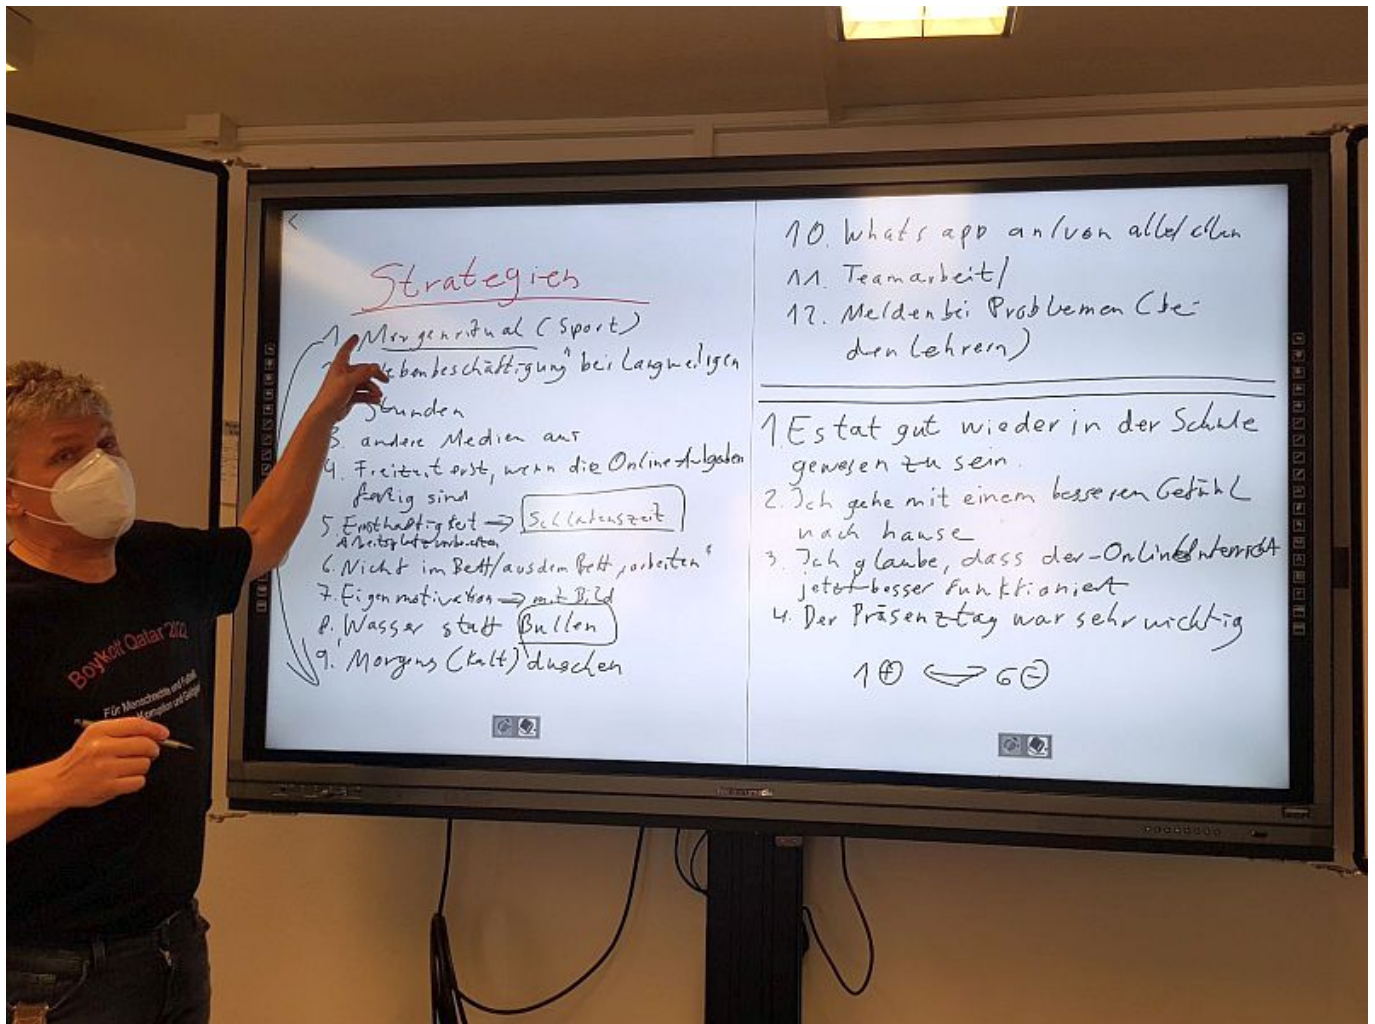 Strategien
1. Morgenritual (Sport)
ebenbeschäftigung" bei langweiligen
Stunden
3. andere Medien aus
4. Freizeit erst, wenn die Online-Aufgaben
fertig sind
5. Ernsthaftigkeit → Schlafenszeit
Arbeitsplatz vorbereiten
6. Nicht im Bett/aus dem Bett „arbeiten"
7. Eigenmotivation → mit Bild
8. Wasser statt Bullen
9. Morgens (kalt) duschen
10. Whats app an/von alle/allen
11. Teamarbeit/
12. Melden bei Problemen (bei
den Lehrern)
1. Es tat gut wieder in der Schule
gewesen zu sein.
2. Ich gehe mit einem besseren Gefühl
nach hause
3. Ich glaube, dass der Onlineunterricht
jetzt besser funktioniert
4. Der Präsenztag war sehr wichtig
1 + 6 -
Boykott Qatar 2022
Für Menschenrechte und Fußball
Korruption und Geldgier